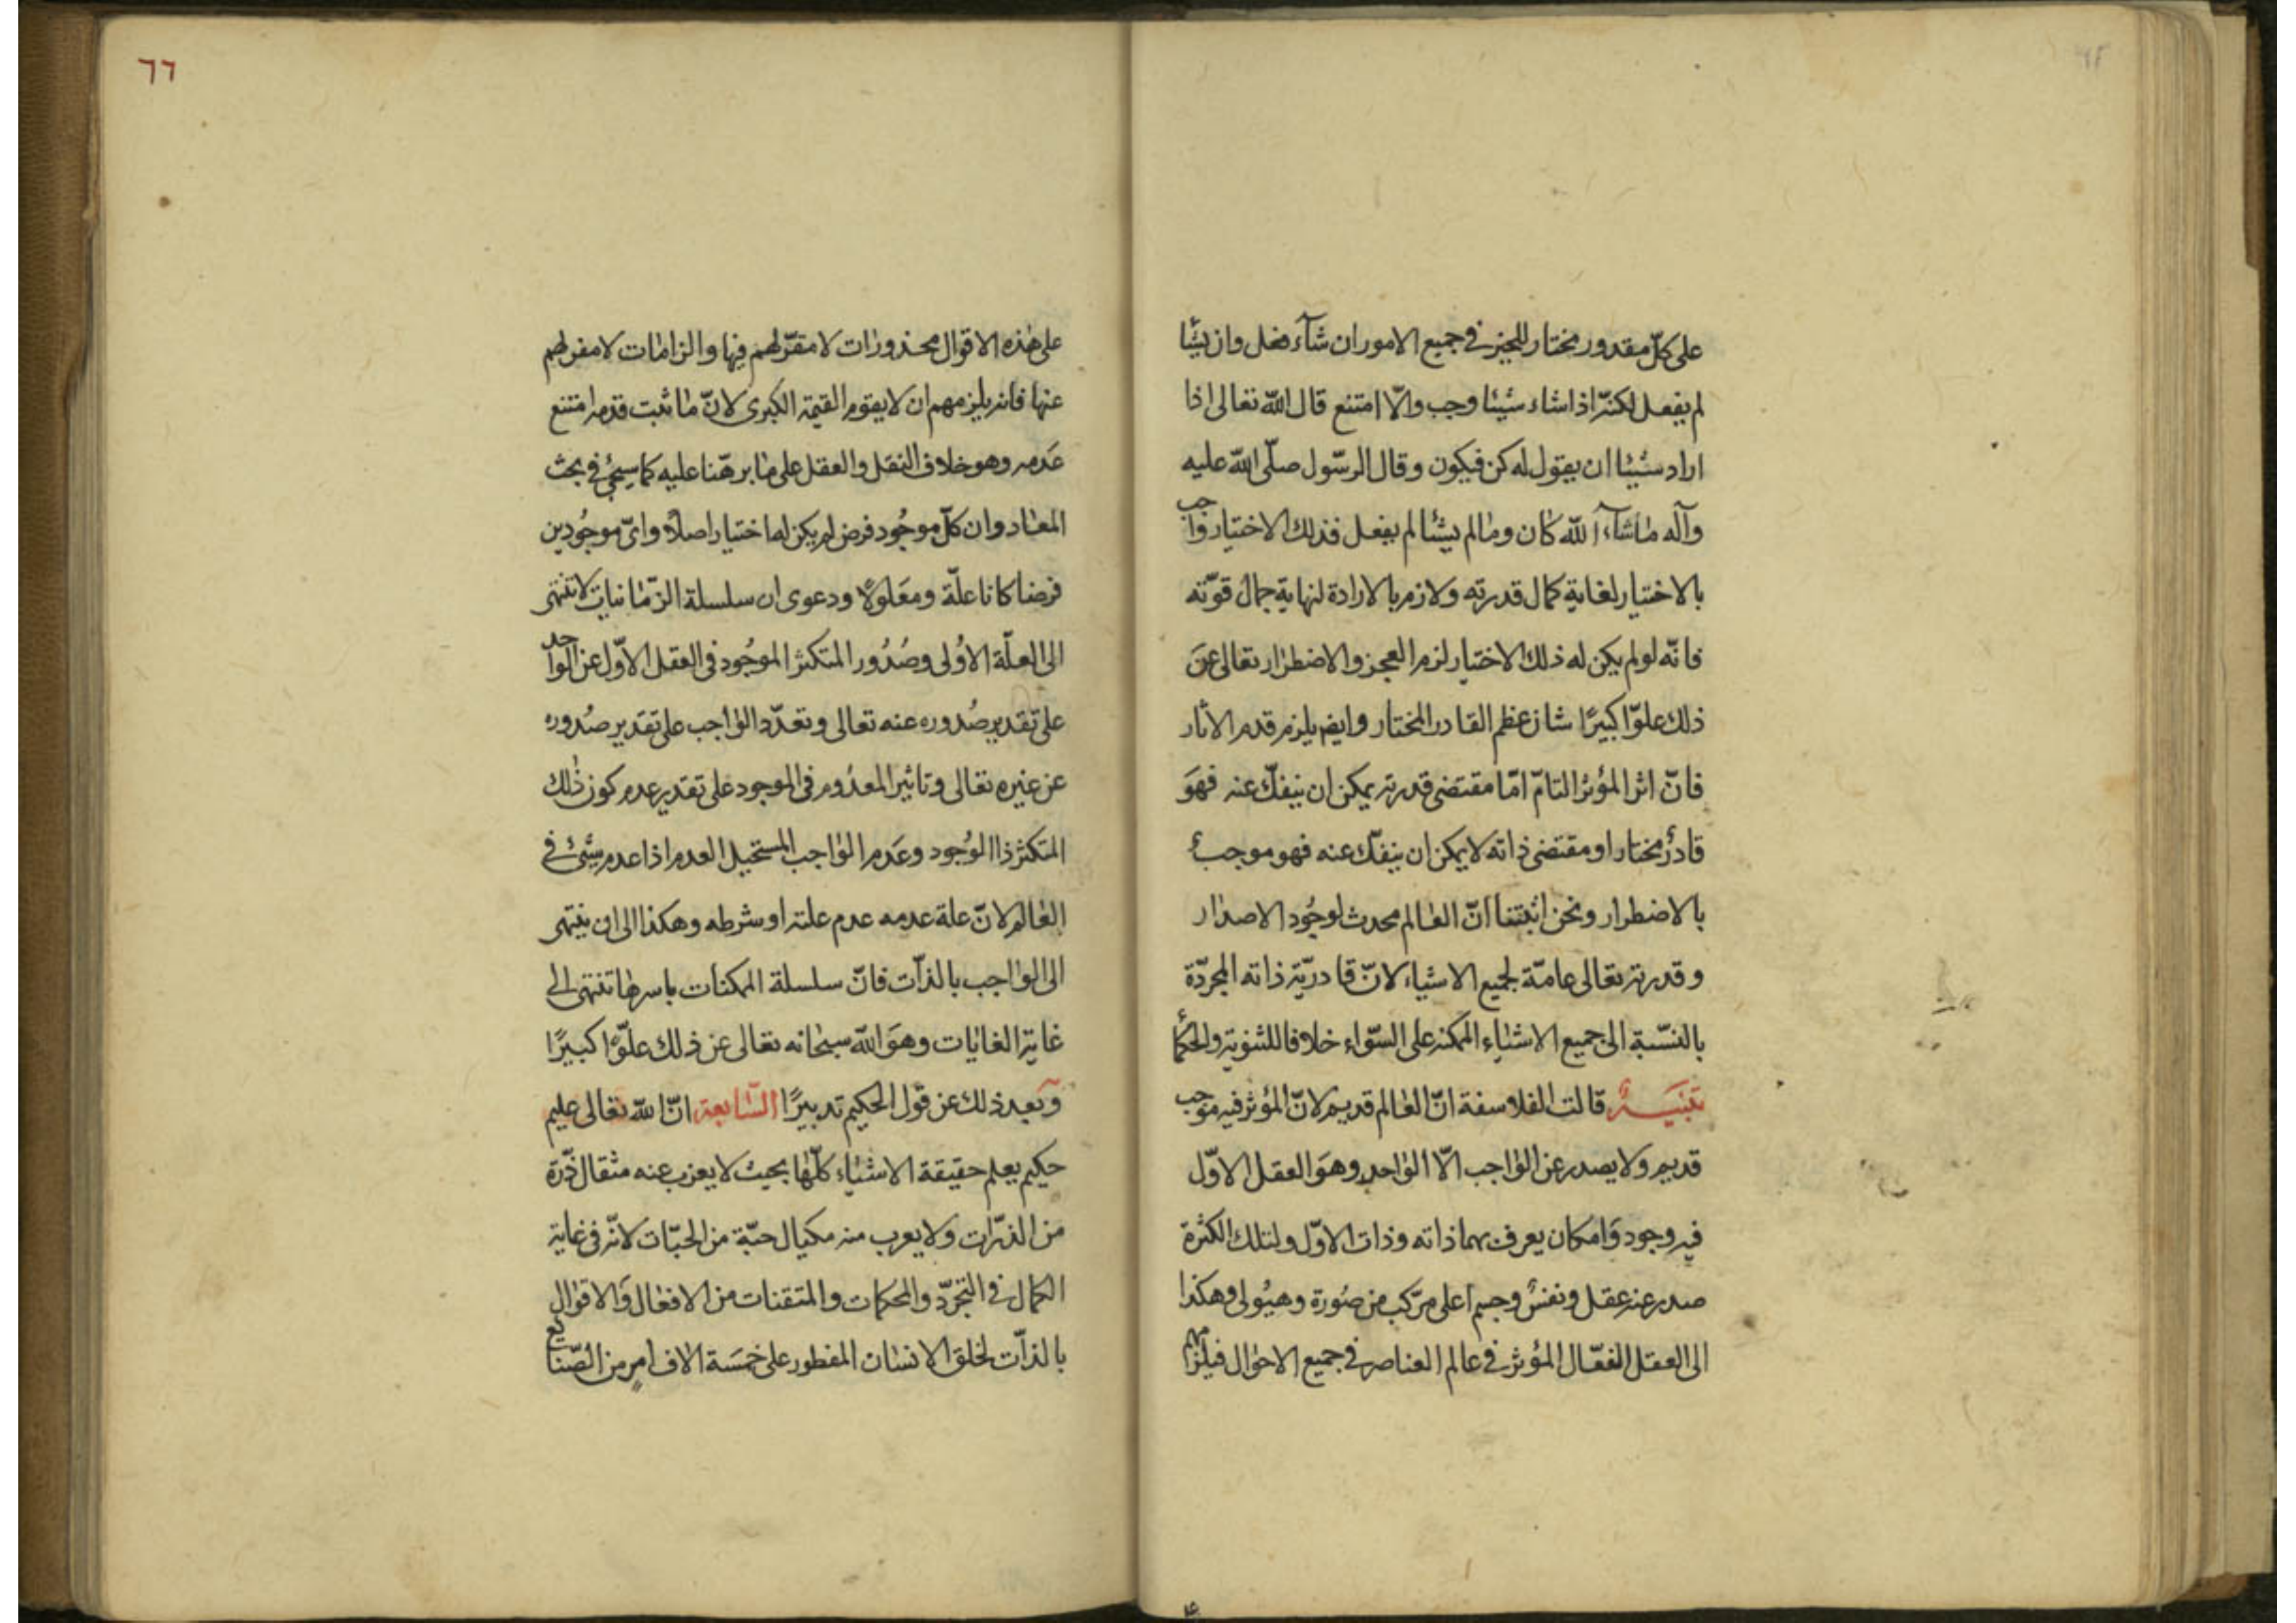 على كلّ مقدور مختار للخير في جميع الامور ان شآء فعل وان يشأ
لم يفعل لكنّه اذا شاء شيئا وجب والّا امتنع قال الله تعالى اذا
اراد شيئا ان يقول له كن فيكون وقال الرسّول صلّى الله عليه
وآله ماشآء الله كان وما لم يشأ لم يفعل فذلك الاختيار واجب
بالاختيار لغاية كمال قدرته ولازم بالارادة لنهاية جمال قوّته
فانّه لو لم يكن له ذلك الاختيار لزم العجز والاضطرار تعالى عن
ذلك علوّا كبيرًا شان عظم القادر المختار وايضم يلزم قدم الاثار
فانّ اثر المؤثر التامّ امّا مقتضى قدرته يمكن ان ينفكّ عنه فهوَ
قادرٌ مختار او مقتضى ذاته لا يمكن ان ينفكّ عنه فهو موجبٌ
بالاضطرار ونحن اثبتنا انّ العالم محدث لوجُود الاصدار
وقدرته تعالى عامّة لجميع الاشياء لانّ قادريّة ذاته المجرّدة
بالنسّبة الى جميع الاشياء الممكنة على السّواء خلافا للثنوية والحكمأ
تنبيـه قالت الفلاسفة انّ العالم قديم لانّ المؤثر فيه موجب
قديم ولا يصدر عن الواجب الّا الواحد وهوَ العقل الاوّل
فيه وجود وَامكان يعرف بهما ذاته وذات الاوّل ولتلك الكثرة
صدر عنه عقل ونفسٌ وجسم اعلى مركب من صُورة وهيُولى وهكذا
الى العقل الفعّال المؤثر في عالم العناصر في جميع الاحوال فيلزمهم
٦٦
على هذه الاقوال محذورات لا مقرّ لهم فيها والزامات لا مفر لهم
عنها فانه يلزمهم ان لا يقوم القيمة الكبرى لانّ ما ثبت قدمه امتنع
عَدمه وهو خلاف النقل والعقل على ما برهنّا عليه كما سيجئ في بحث
المعاد وان كلّ موجُود فرض لم يكن له اختيار اصلاً واىّ موجُودين
فرضا كانا علّة ومعَلولًا ودعوى ان سلسلة الزّمانيات لا تنتهى
الى العلّة الاوُلى وصُدُور المتكثر الموجُود فى العقل الاوّل عن الواحد
على تقدير صُدوره عنه تعالى وتعدّد الواجب على تقدير صدُوره
عن غيره تعالى وتاثير المعدُوم فى الموجود على تقدير عدم كون ذٰلك
المتكثر ذا الوجُود وعَدم الواجب المستحيل العدم اذا عدم شيئ فى
العالم لانّ علة عدمه عدم علته او شرطه وهكذا الى ان ينتهى
الى الواجب بالذاّت فانّ سلسلة الممكنات باسرها تنتهى الى
غاية الغايات وهوَ الله سبحانه تعالى عن ذلك علوّا كبيرًا
وبَعيد ذلك عن قول الحكيم تدبيرًا السّابعة انّ الله تعالى عليم
حكيم يعلم حقيقة الاشياء كلّها بحيث لا يعزب عنه مثقال ذّرة
من الذرّات ولا يعرب منه مكيال حبّة من الحبّات لانّه فى غاية
الكمال فى التجرّد والمحكمات والمتقنات من الافعال وَالاقوال
بالذاّت لخلق الانسان المفطور على خمَسَة الاف امرٍ من الصّنايع